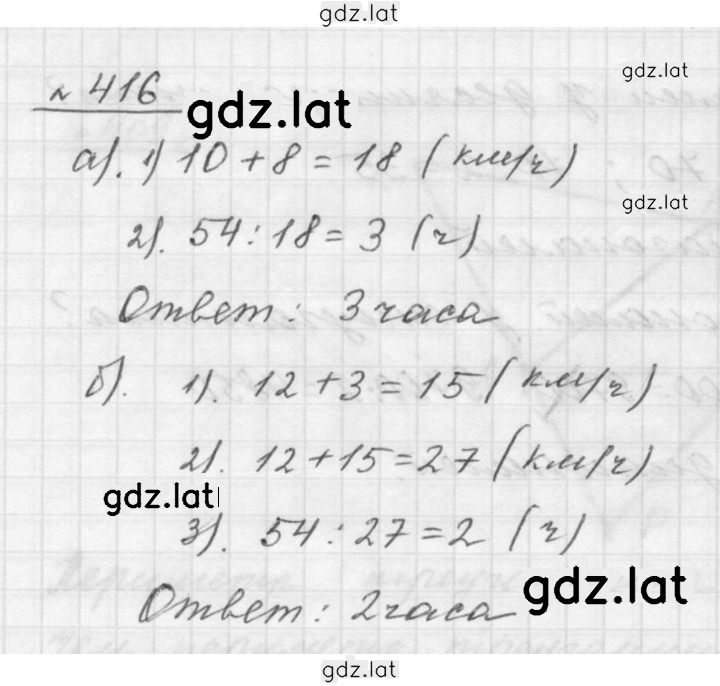 gdz.lat
№ 416
gdz.lat
gdz.lat
а). 1) 10 + 8 = 18 (км/ч)
gdz.lat
2). 54 : 18 = 3 (ч)
Ответ: 3 часа
б). 1). 12 + 3 = 15 (км/ч)
2). 12 + 15 = 27 (км/ч)
gdz.lat
3). 54 : 27 = 2 (ч)
gdz.lat
Ответ: 2 часа
gdz.lat